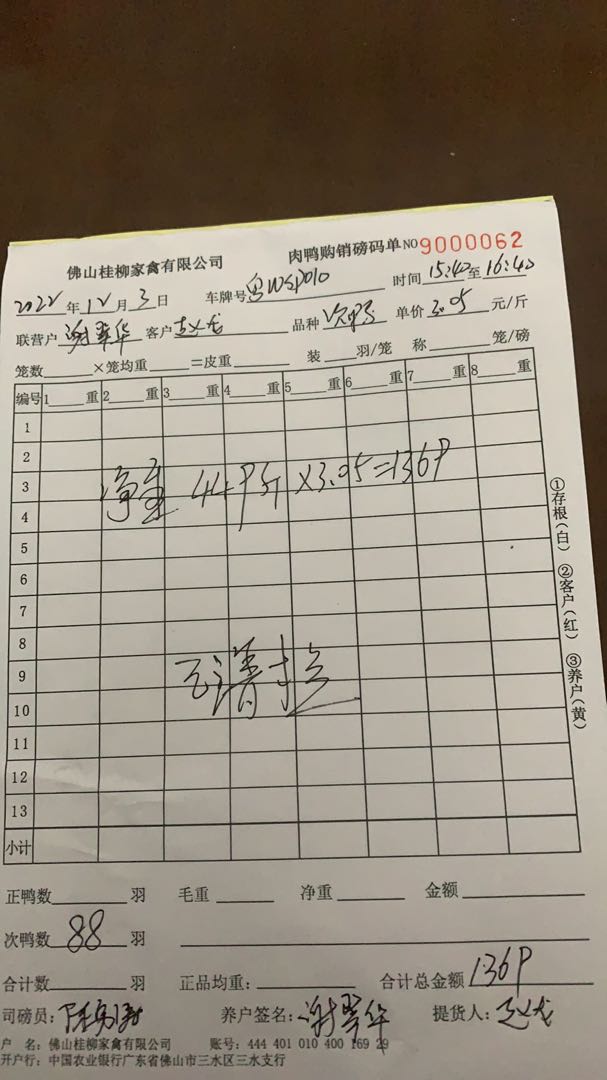 佛山桂柳家禽有限公司 肉鸭购销磅码单 NO 9000062
2022年12月3日 车牌号 时间15:40至16:40
联营户 谢翠华 客户 品种 次鸭 单价 3.05 元/斤
笼数 ×笼均重 =皮重 装 羽/笼 称 笼/磅
编号 1 重 2 重 3 重 4 重 5 重 6 重 7 重 8 重
1
2
3
净重 449斤×3.05=1369
4
5
6
7
8
9
10
11
12
13
小计
①存根(白) ②客户(红) ③养户(黄)
正鸭数 羽 毛重 净重 金额
次鸭数 88 羽
合计数 羽 正品均重: 合计总金额 1369
司磅员: 养户签名: 谢翠华 提货人:
户 名: 佛山桂柳家禽有限公司 账号: 444 401 010 400 169 29
开户行: 中国农业银行广东省佛山市三水区三水支行